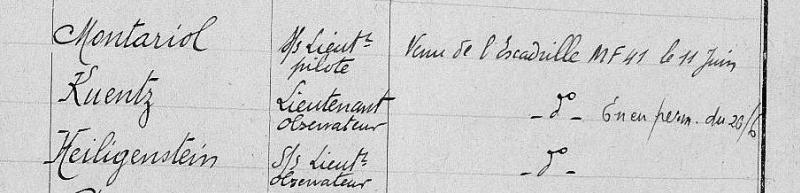 Montariol S/s Lieutt Venu de l'Escadrille MF 41 le 11 Juin
pilote
Kuentz Lieutenant - do - en perm. du 20/6
observateur
Heiligenstein S/s Lieutt - do -
observateur